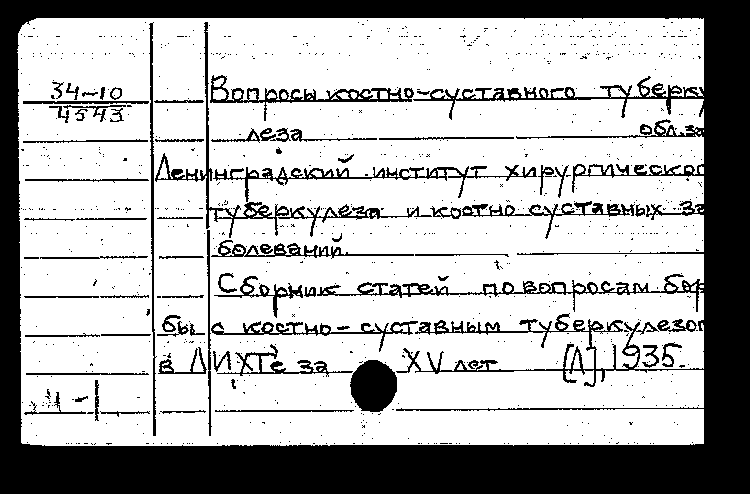 34-10
4543
Вопросы костно-суставного туберку
леза обл.за
Ленинградский институт хирургическог
туберкулеза и костно суставных за
болеваний.
Сборник статей по вопросам бор
бы с костно-суставным туберкулезом
в ЛИХТе за XV лет [Л], 1935.